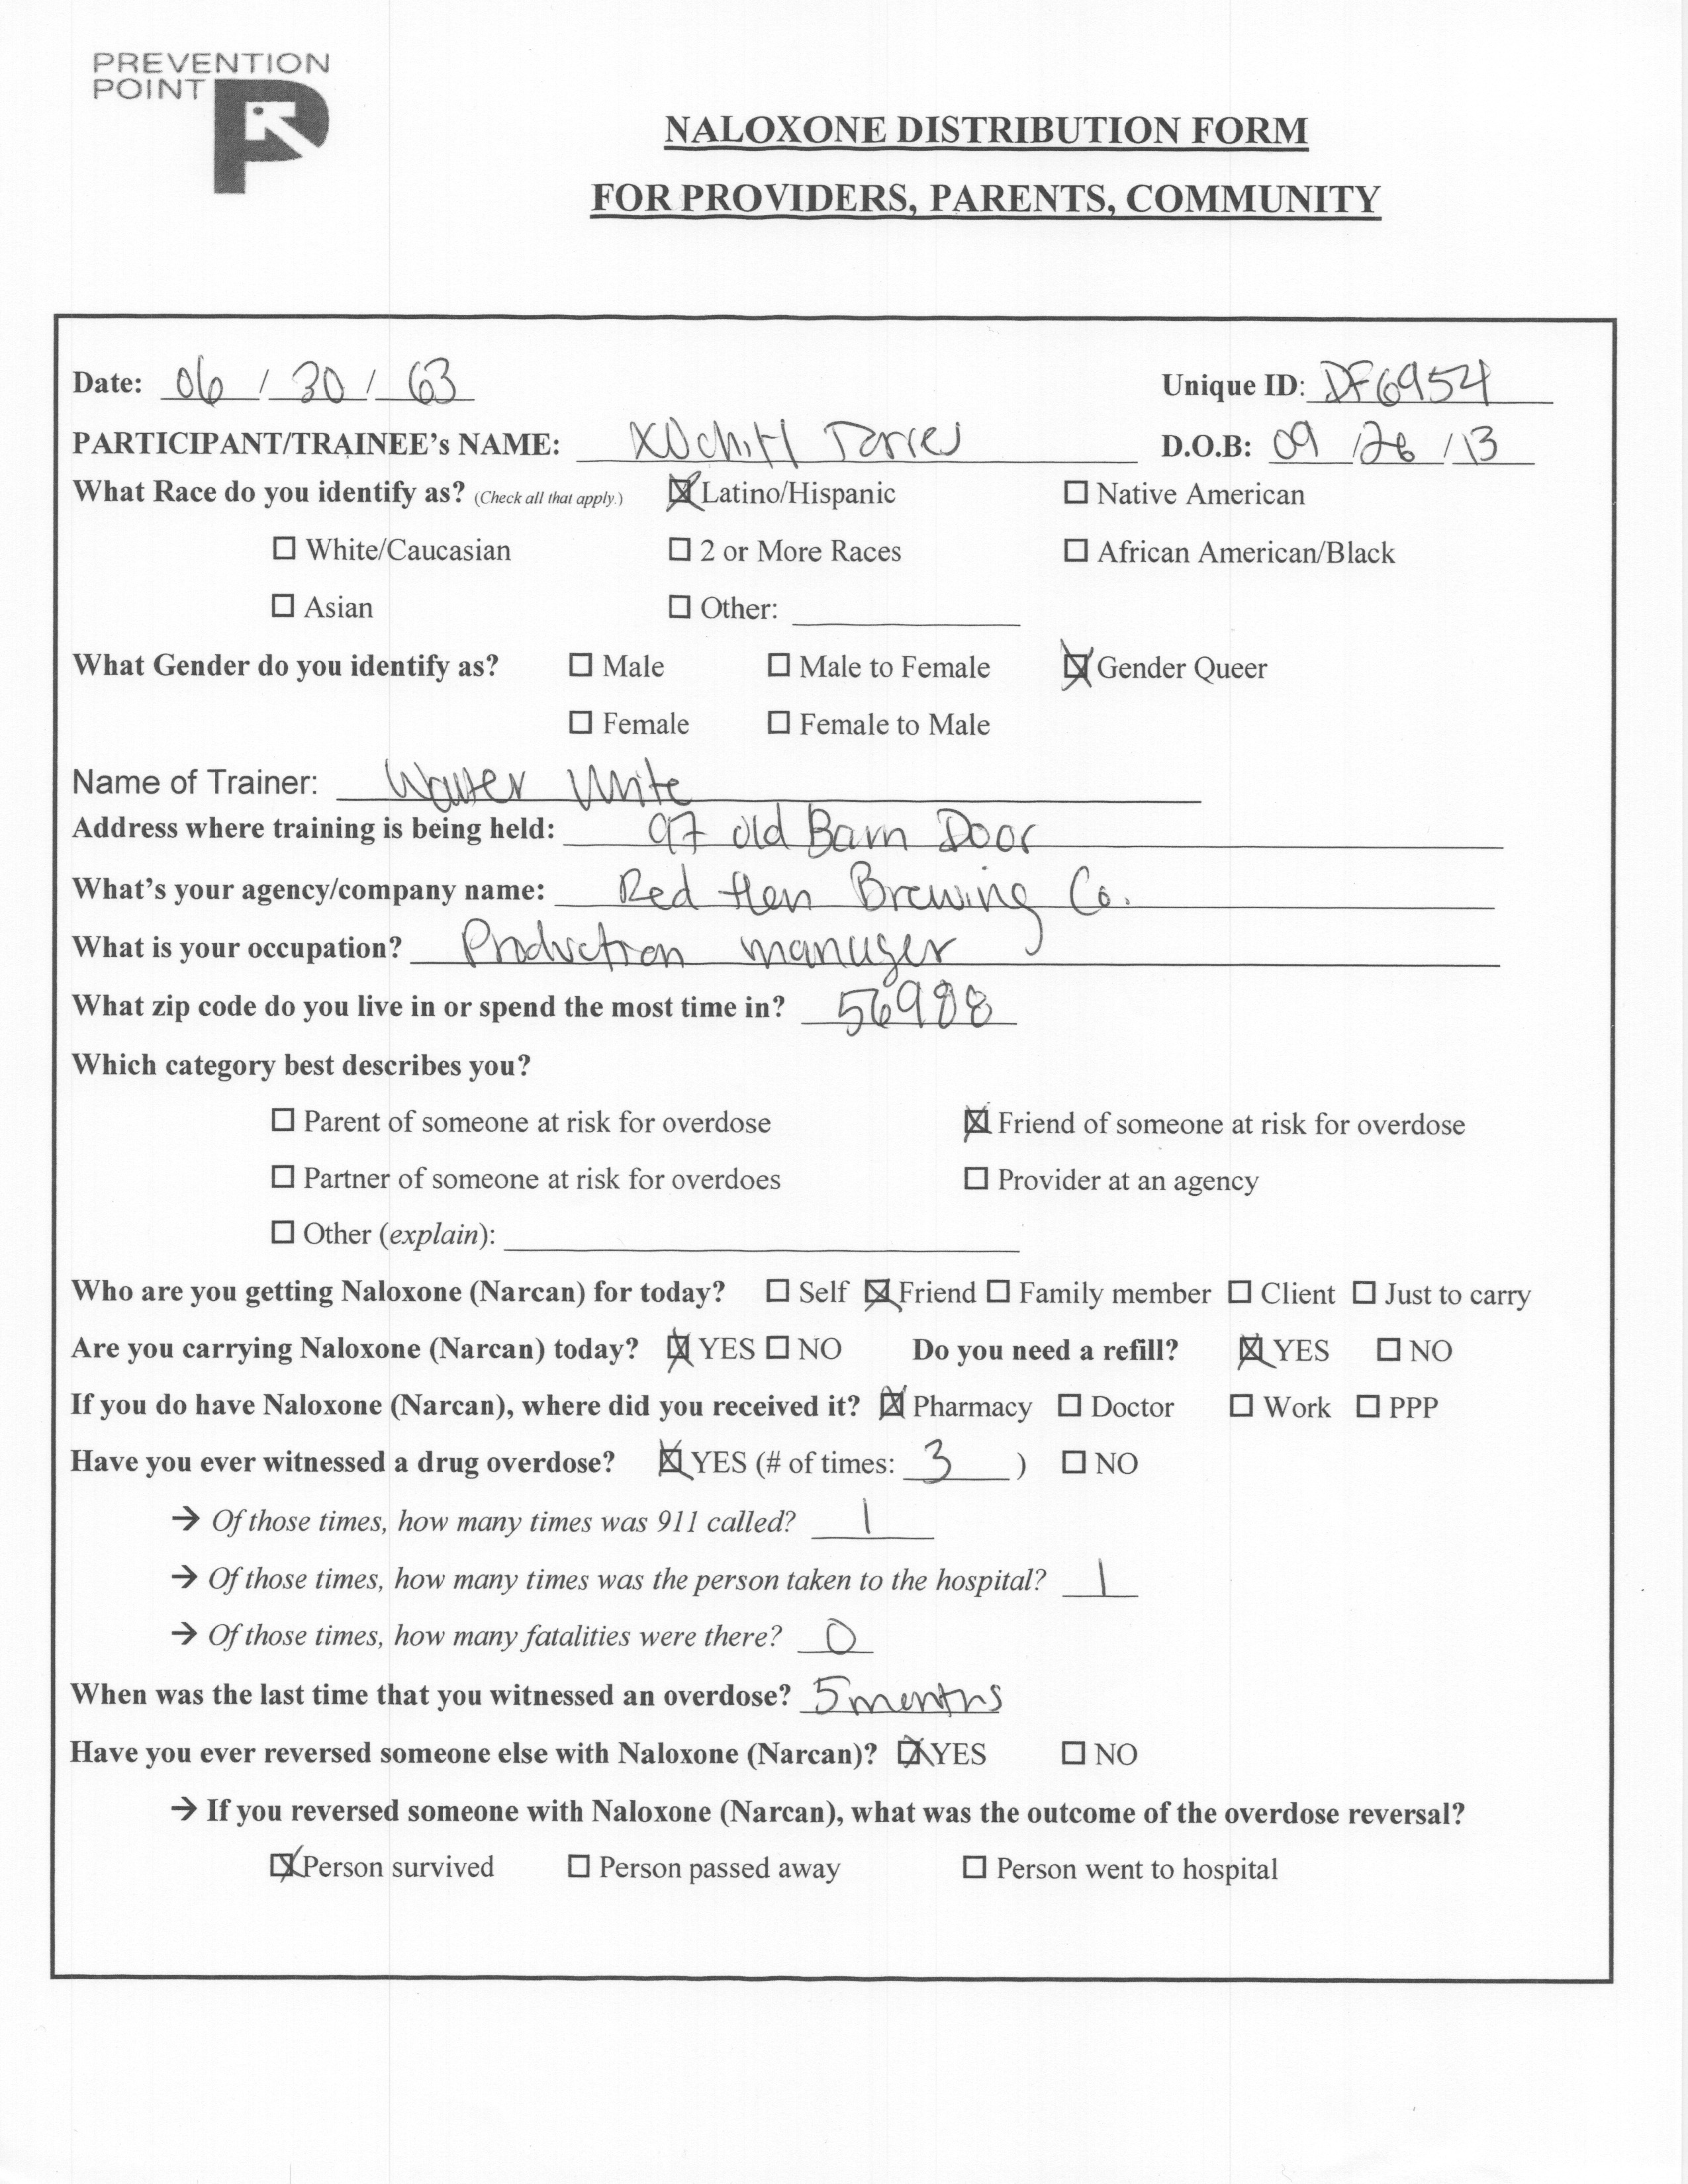 PREVENTION
POINT
NALOXONE DISTRIBUTION FORM
FOR PROVIDERS, PARENTS, COMMUNITY
Date: 06 / 30 / 63 Unique ID: DF6954
PARTICIPANT/TRAINEE's NAME: Xochitl Torres D.O.B: 09 / 26 / 13
What Race do you identify as? (Check all that apply.) ☒ Latino/Hispanic ☐ Native American
☐ White/Caucasian ☐ 2 or More Races ☐ African American/Black
☐ Asian ☐ Other:
What Gender do you identify as? ☐ Male ☐ Male to Female ☒ Gender Queer
☐ Female ☐ Female to Male
Name of Trainer: Walter White
Address where training is being held: 97 old Barn Door
What's your agency/company name: Red Hen Brewing Co.
What is your occupation? Production manager
What zip code do you live in or spend the most time in? 56988
Which category best describes you?
☐ Parent of someone at risk for overdose ☒ Friend of someone at risk for overdose
☐ Partner of someone at risk for overdoes ☐ Provider at an agency
☐ Other (explain):
Who are you getting Naloxone (Narcan) for today? ☐ Self ☒ Friend ☐ Family member ☐ Client ☐ Just to carry
Are you carrying Naloxone (Narcan) today? ☒ YES ☐ NO Do you need a refill? ☒ YES ☐ NO
If you do have Naloxone (Narcan), where did you received it? ☒ Pharmacy ☐ Doctor ☐ Work ☐ PPP
Have you ever witnessed a drug overdose? ☒ YES (# of times: 3 ) ☐ NO
→ Of those times, how many times was 911 called? 1
→ Of those times, how many times was the person taken to the hospital? 1
→ Of those times, how many fatalities were there? 0
When was the last time that you witnessed an overdose? 5 months
Have you ever reversed someone else with Naloxone (Narcan)? ☒ YES ☐ NO
→ If you reversed someone with Naloxone (Narcan), what was the outcome of the overdose reversal?
☒ Person survived ☐ Person passed away ☐ Person went to hospital